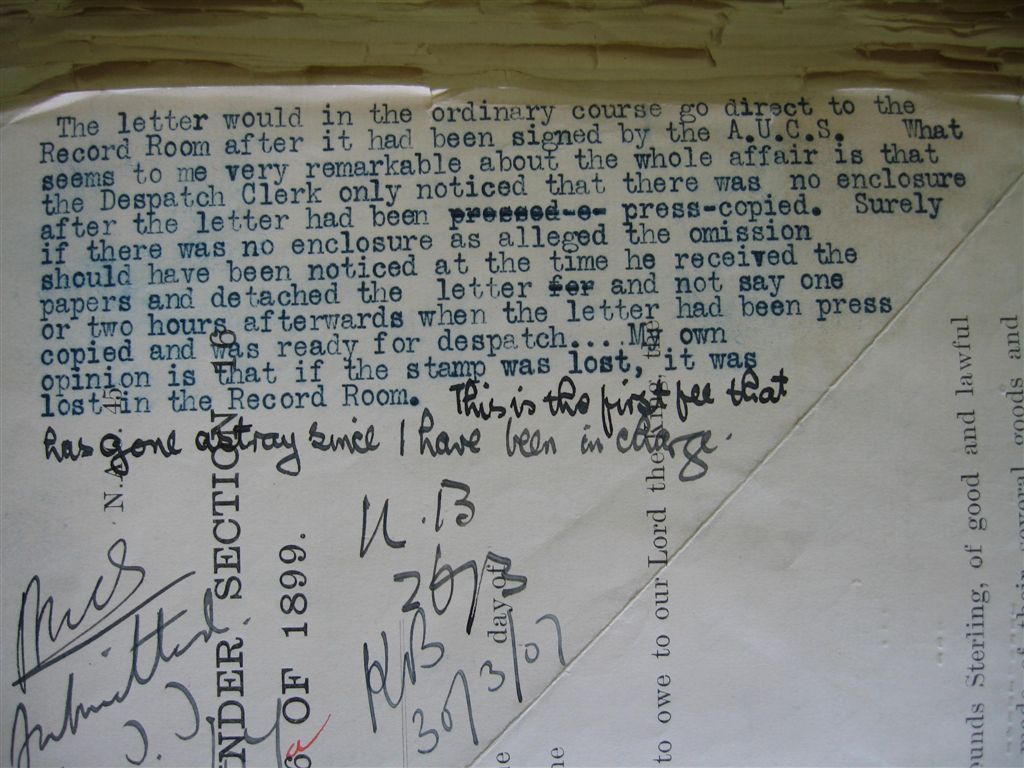 The letter would in the ordinary course go direct to the
Record Room after it had been signed by the A.U.C.S. What
seems to me very remarkable about the whole affair is that
the Despatch Clerk only noticed that there was no enclosure
after the letter had been pressed-e- press-copied. Surely
if there was no enclosure as alleged the omission
should have been noticed at the time he received the
papers and detached the letter for and not say one
or two hours afterwards when the letter had been press
copied and was ready for despatch.... My own
opinion is that if the stamp was lost, it was
lost in the Record Room. This is the first fee that
has gone astray since I have been in charge.
30/3/07
Submitted.
N.A. 45
UNDER SECTION 16
OF 1899.
day of
to owe to our Lord the
unds Sterling, of good and lawful
of their several goods and